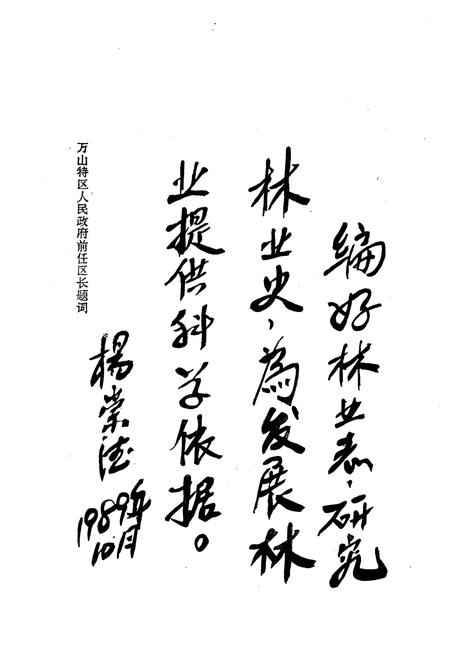 编好林业志，研究
林业史，為发展林
业提供科学依据。
楊崇德
1989年
10月
万山特区人民政府前任区长题词